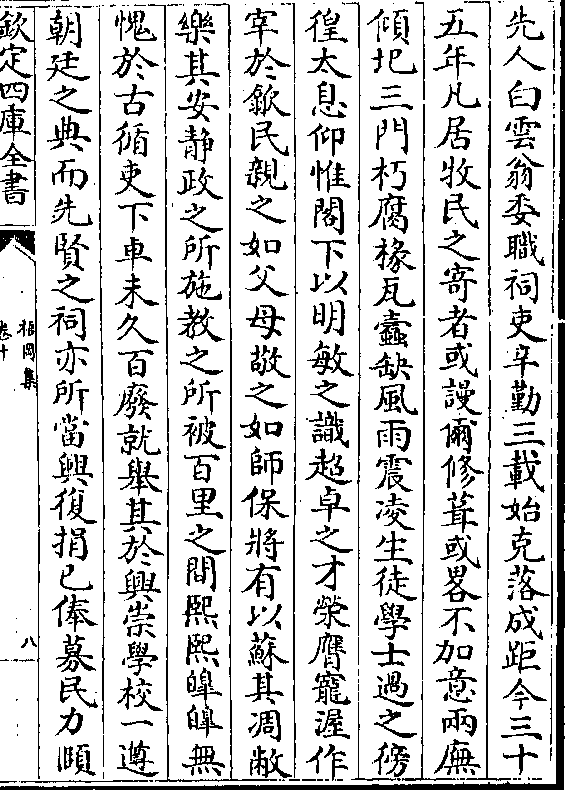 先人白雲翁委職祠吏辛勤三載始克落成距今三十
五年凡居牧民之寄者或謾爾修葺或畧不加意兩廡
傾圯三門朽腐椽瓦蠧缺風雨震凌生徒學士過之徬
徨太息仰惟閣下以明敏之識超卓之才榮膺寵渥作
宰於歙民親之如父母敬之如師保將有以蘇其凋敝
樂其安静政之所施教之所被百里之間熙熙皥皥無
愧於古循吏下車未久百廢就舉其於興崇學校一遵
朝廷之典而先賢之祠亦所當興復捐已俸募民力頤
欽定四庫全書
卷十
八